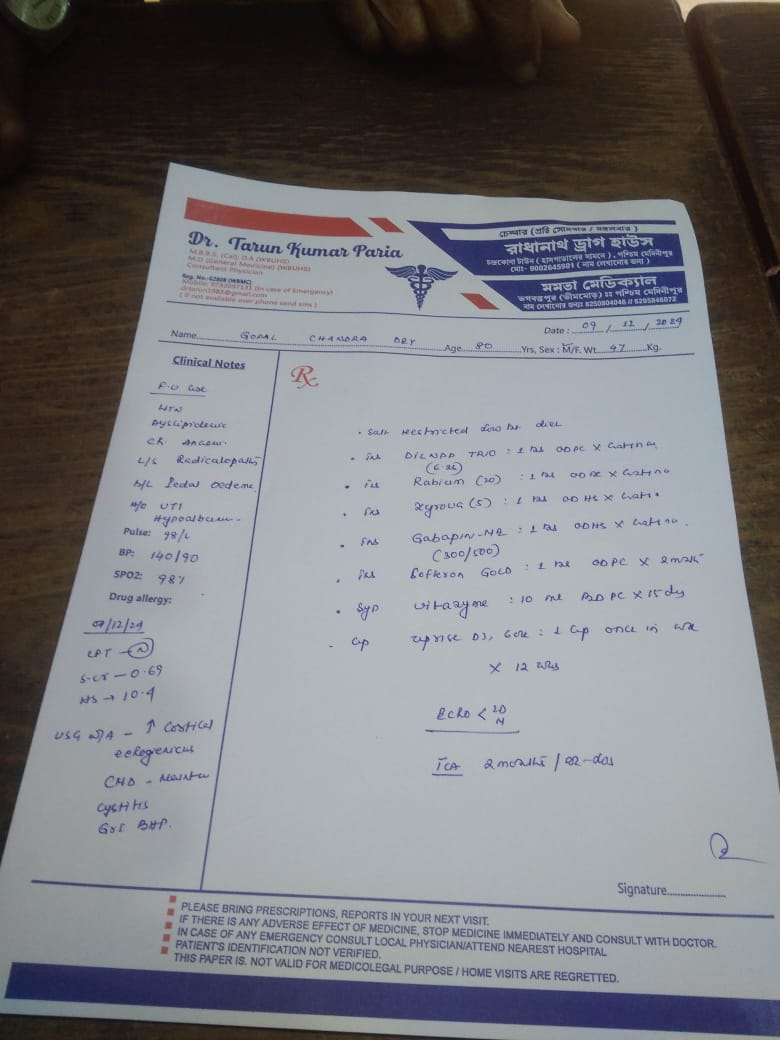 Dr. Tarun Kumar Paria
M.B.B.S. (Cal), D.A (WBUHS)
M.D (General Medicine) (WBUHS)
Consultant Physician
Reg. No.-62808 (WBMC)
Mobile: 9732097131 (In case of Emergency)
drtarun1983@gmail.com
( If not available over phone send sms )
চেম্বার (প্রতি সোমবার / মঙ্গলবার )
রাধানাথ ড্রাগ হাউস
চন্দ্রকোণা টাউন ( হাসপাতালের সামনে ) , পশ্চিম মেদিনীপুর
মোঃ- 9002645901 ( নাম লেখানোর জন্য )
মমতা মেডিক্যাল
ভগবন্তপুর (ভীমমোড়) ঃঃ পশ্চিম মেদিনীপুর
নাম লেখানোর জন্যঃ 8250804046 // 6295846072
Date : 09 / 12 / 2024
Name GOPAL CHANDRA Age 80 Yrs, Sex : M/F. Wt 47 Kg.
Clinical Notes
Rx
HTN
Dyslipidemic
L/S Radiculopathy
B/L Pedal Oedema
H/O UTI
Pulse: 98/
BP: 140/90
SPO2: 98%
Drug allergy:
/12/24
LFT → N
S.cr — 0.69
→ 10.4
USG W/A – ↑ Cortical
echogenicity
CMD –
Cystitis
Gr I BHP.
• Salt Restricted diet
• DILNIP TRIO : 1 OD PC X
(6.25)
• Rabium (20) : 1 X
• (5) : 1 OD HS X
• Gabapin-NT : 1 OD HS X
(300/500)
• GOLD : 1 OD PC X 2 month
• Syp Vitazyme : 10 ml BD PC X 15 dys
• Cap Uprise D3, 60K : 1 Cap once in
X 12 wks
ECHO < 2D
TCA 2 months /
Signature
PLEASE BRING PRESCRIPTIONS, REPORTS IN YOUR NEXT VISIT.
IF THERE IS ANY ADVERSE EFFECT OF MEDICINE, STOP MEDICINE IMMEDIATELY AND CONSULT WITH DOCTOR.
IN CASE OF ANY EMERGENCY CONSULT LOCAL PHYSICIAN/ATTEND NEAREST HOSPITAL
PATIENT'S IDENTIFICATION NOT VERIFIED.
THIS PAPER IS. NOT VALID FOR MEDICOLEGAL PURPOSE / HOME VISITS ARE REGRETTED.